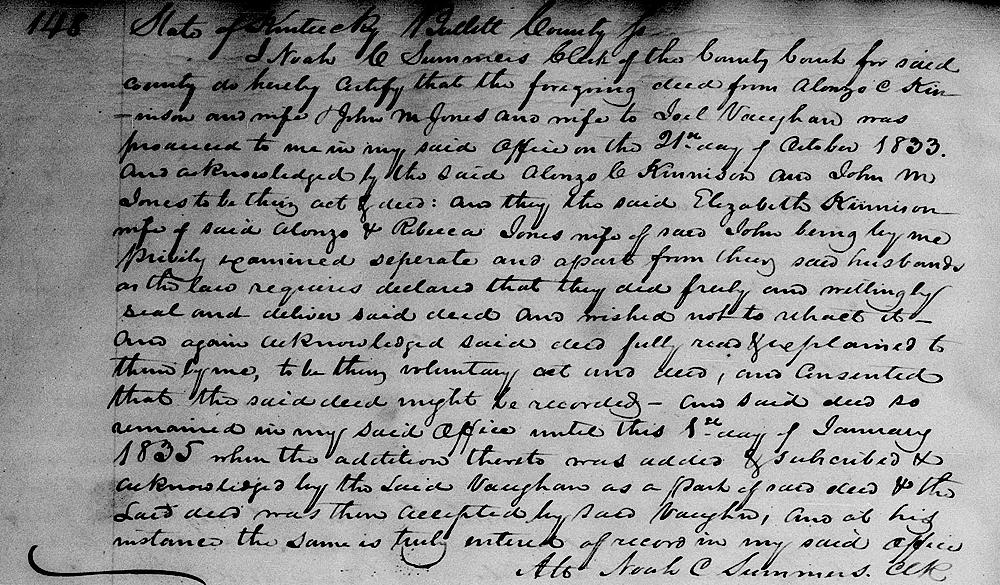 148 State of Kentucky Bullitt County ss
I Noah C Summers Clerk of the County Court for said
County do hereby Certify that the foregoing deed from Alonzo C Kin-
-nison and wife & John M Jones and wife to Joel Vaughan was
produced to me in my said Office on the 21st day of October 1833.
And acknowledged by the said Alonzo C Kinnison and John M
Jones to be their act & deed: and they the said Elizabeth Kinnison
wife of said Alonzo & Rebecca Jones wife of said John being by me
Privily examined seperate and apart from their said husbands
as the law requires declared that they did freely and willingly
seal and deliver said deed and wished not to retract it -
And again acknowledged said deed fully read & explained to
them by me, to be their voluntary act and deed, and Consented
that the said deed might be recorded - and said deed so
remained in my said Office until this 1st day of January
1835 when the addition thereto was added & subcribed &
acknowledged by the said Vaughan as a part of said deed & the
said deed was then accepted by said Vaughn, and at his
instance the same is truly entered of record in my said office
Att Noah C Summers. Clk